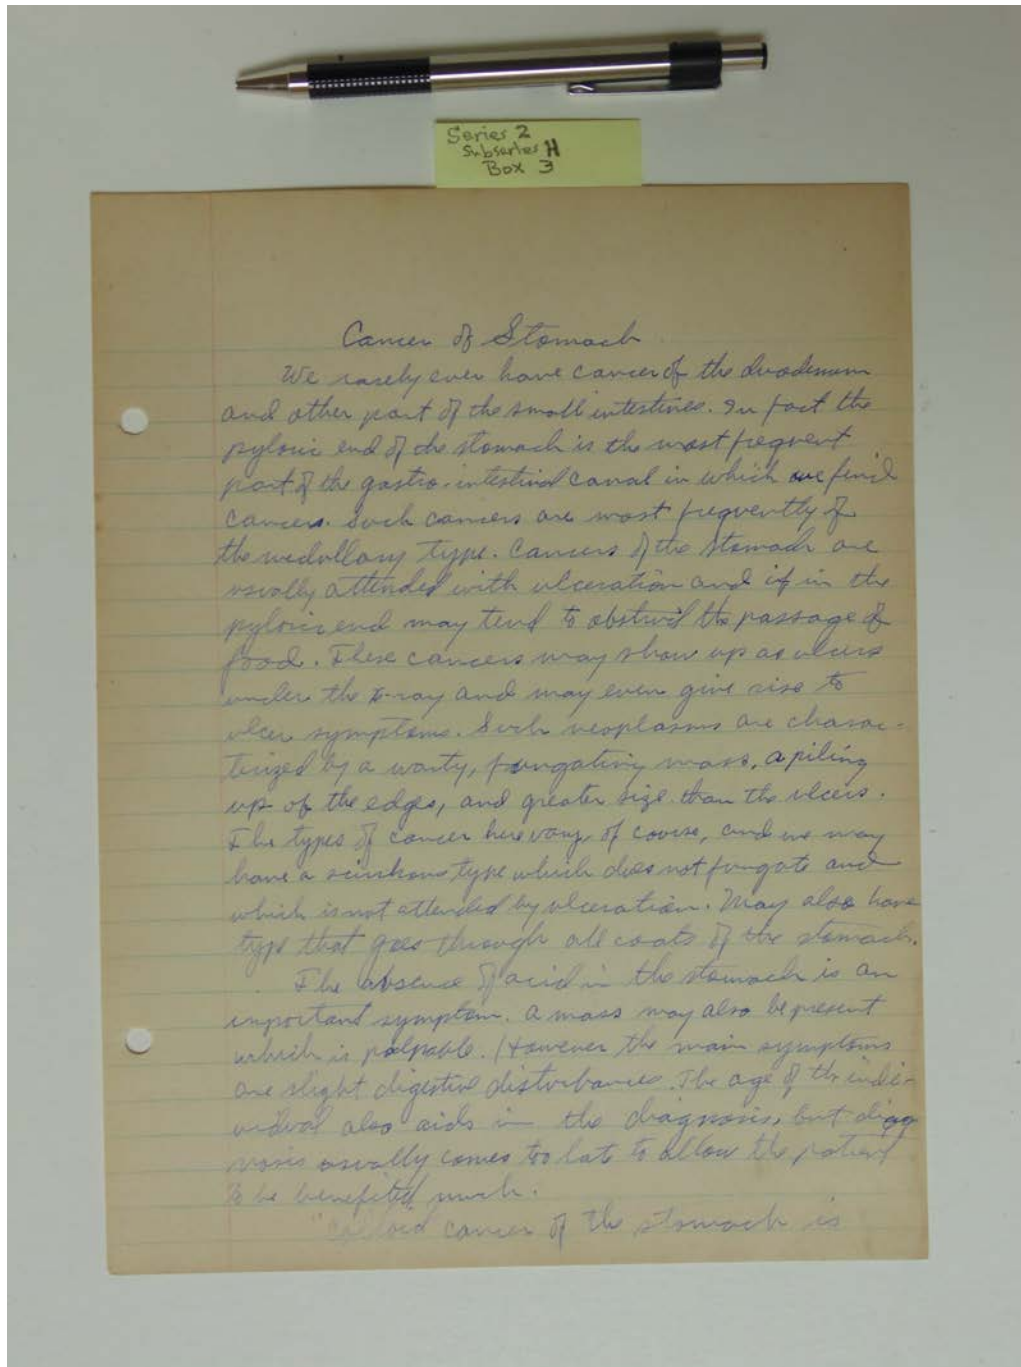 Series 2
Subseries H
Box 3
Cancer of Stomach
We rarely ever have cancer of the duodenum
and other part of the small intestines. In fact the
pyloric end of the stomach is the most freqvent
part of the gastro-intestinal canal in which we find
cancers. Such cancers are most freqvently of
the medullary type. Cancers of the stomach are
usually attended with ulceration and if in the
pyloric end may tend to obstruct the passage of
food. These cancers may show up as ulcers
under the x-ray and may even give rise to
ulcer symptoms. Such neoplasms are charac-
terized by a warty, fungating mass, a piling
up of the edges, and greater size than the ulcers.
The types of cancer here vary, of course, and we may
have a scirrhous type which does not fungate and
which is not attended by ulceration. May also have
type that goes through all coats of the stomach.
The absence of acid in the stomach is an
important symptom. A mass may also be present
which is palpable. However the main symptoms
are slight digestive disturbances. The age of the indi-
vidual also aids in the diagnosis, but diag
nosis usually comes too late to allow the patient
to be benefited much.
"Colloid cancer of the stomach is